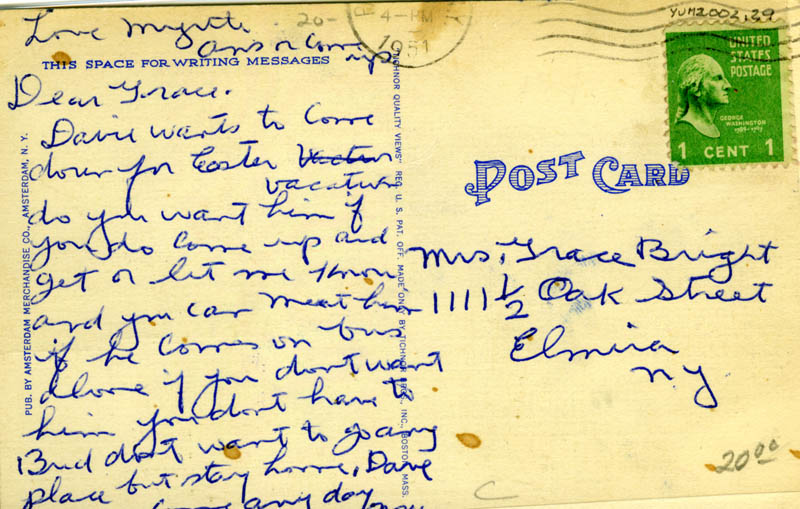 Love Myrtle
Ans or Come
up
THIS SPACE FOR WRITING MESSAGES
Dear Grace.
Davie wants to Come
down for Easter
vacation
do you want him if
you do Come up and
get or let me know
and you can meat him
if he Comes on bus
alone if you dont want
him you dont have to
Bud dont want to go any
place but stay home, Dave
any day
PUB. BY AMSTERDAM MERCHANDISE CO., AMSTERDAM, N. Y.
"TICHNOR QUALITY VIEWS" REG. U. S. PAT. OFF. MADE ONLY BY TICHNOR BROS., INC., BOSTON, MASS.
20-
4-PM
1951
YUM2002.39
UNITED
STATES
POSTAGE
GEORGE
WASHINGTON
1789-1797
1 CENT 1
POST CARD
Mrs. Grace Bright
1111 1/2 Oak Street
Elmira
N.Y
20 00
C